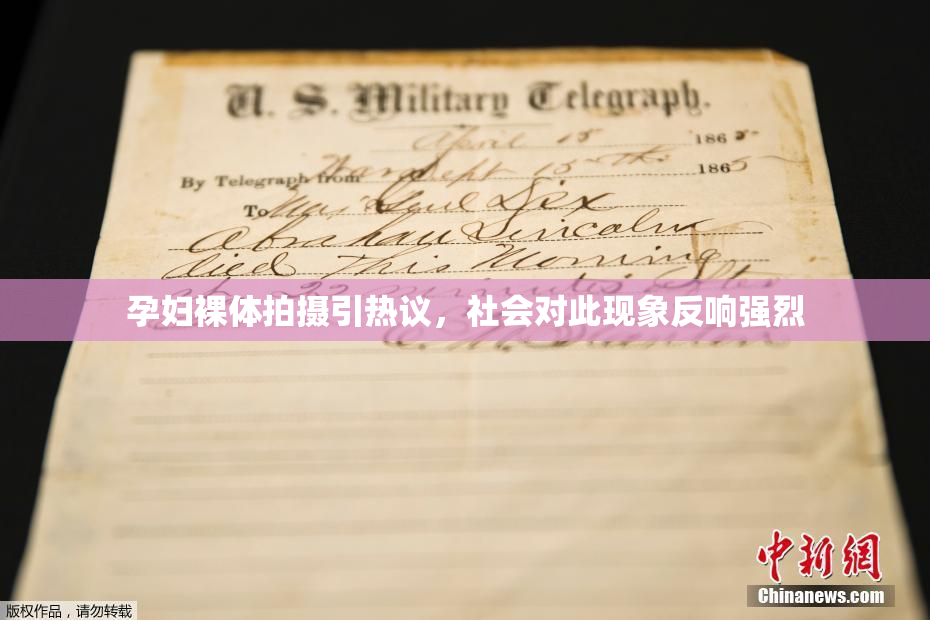 U. S. Military Telegraph.
April 15 1865
By Telegraph from Wash Dept 15th 1865
To Maj Genl Dix
Abraham Lincoln
died This Morning
at 22 minutes after
孕妇裸体拍摄引热议，社会对此现象反响强烈
E. M. Stanton
中新網
Chinanews.com
版权作品，请勿转载